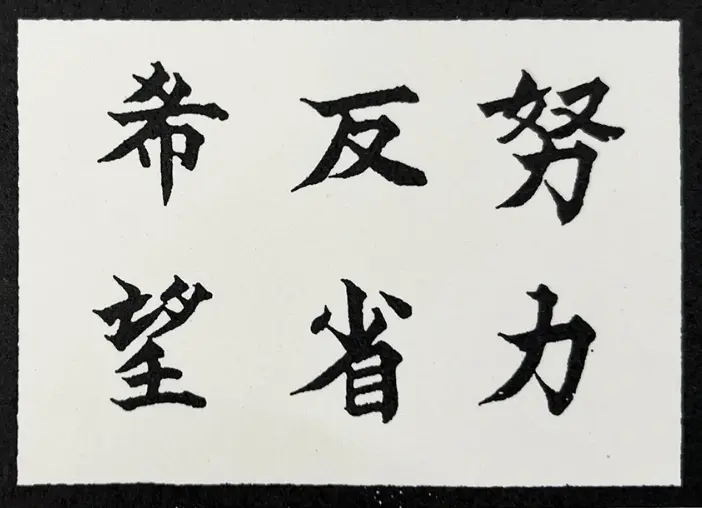 努力
反省
希望